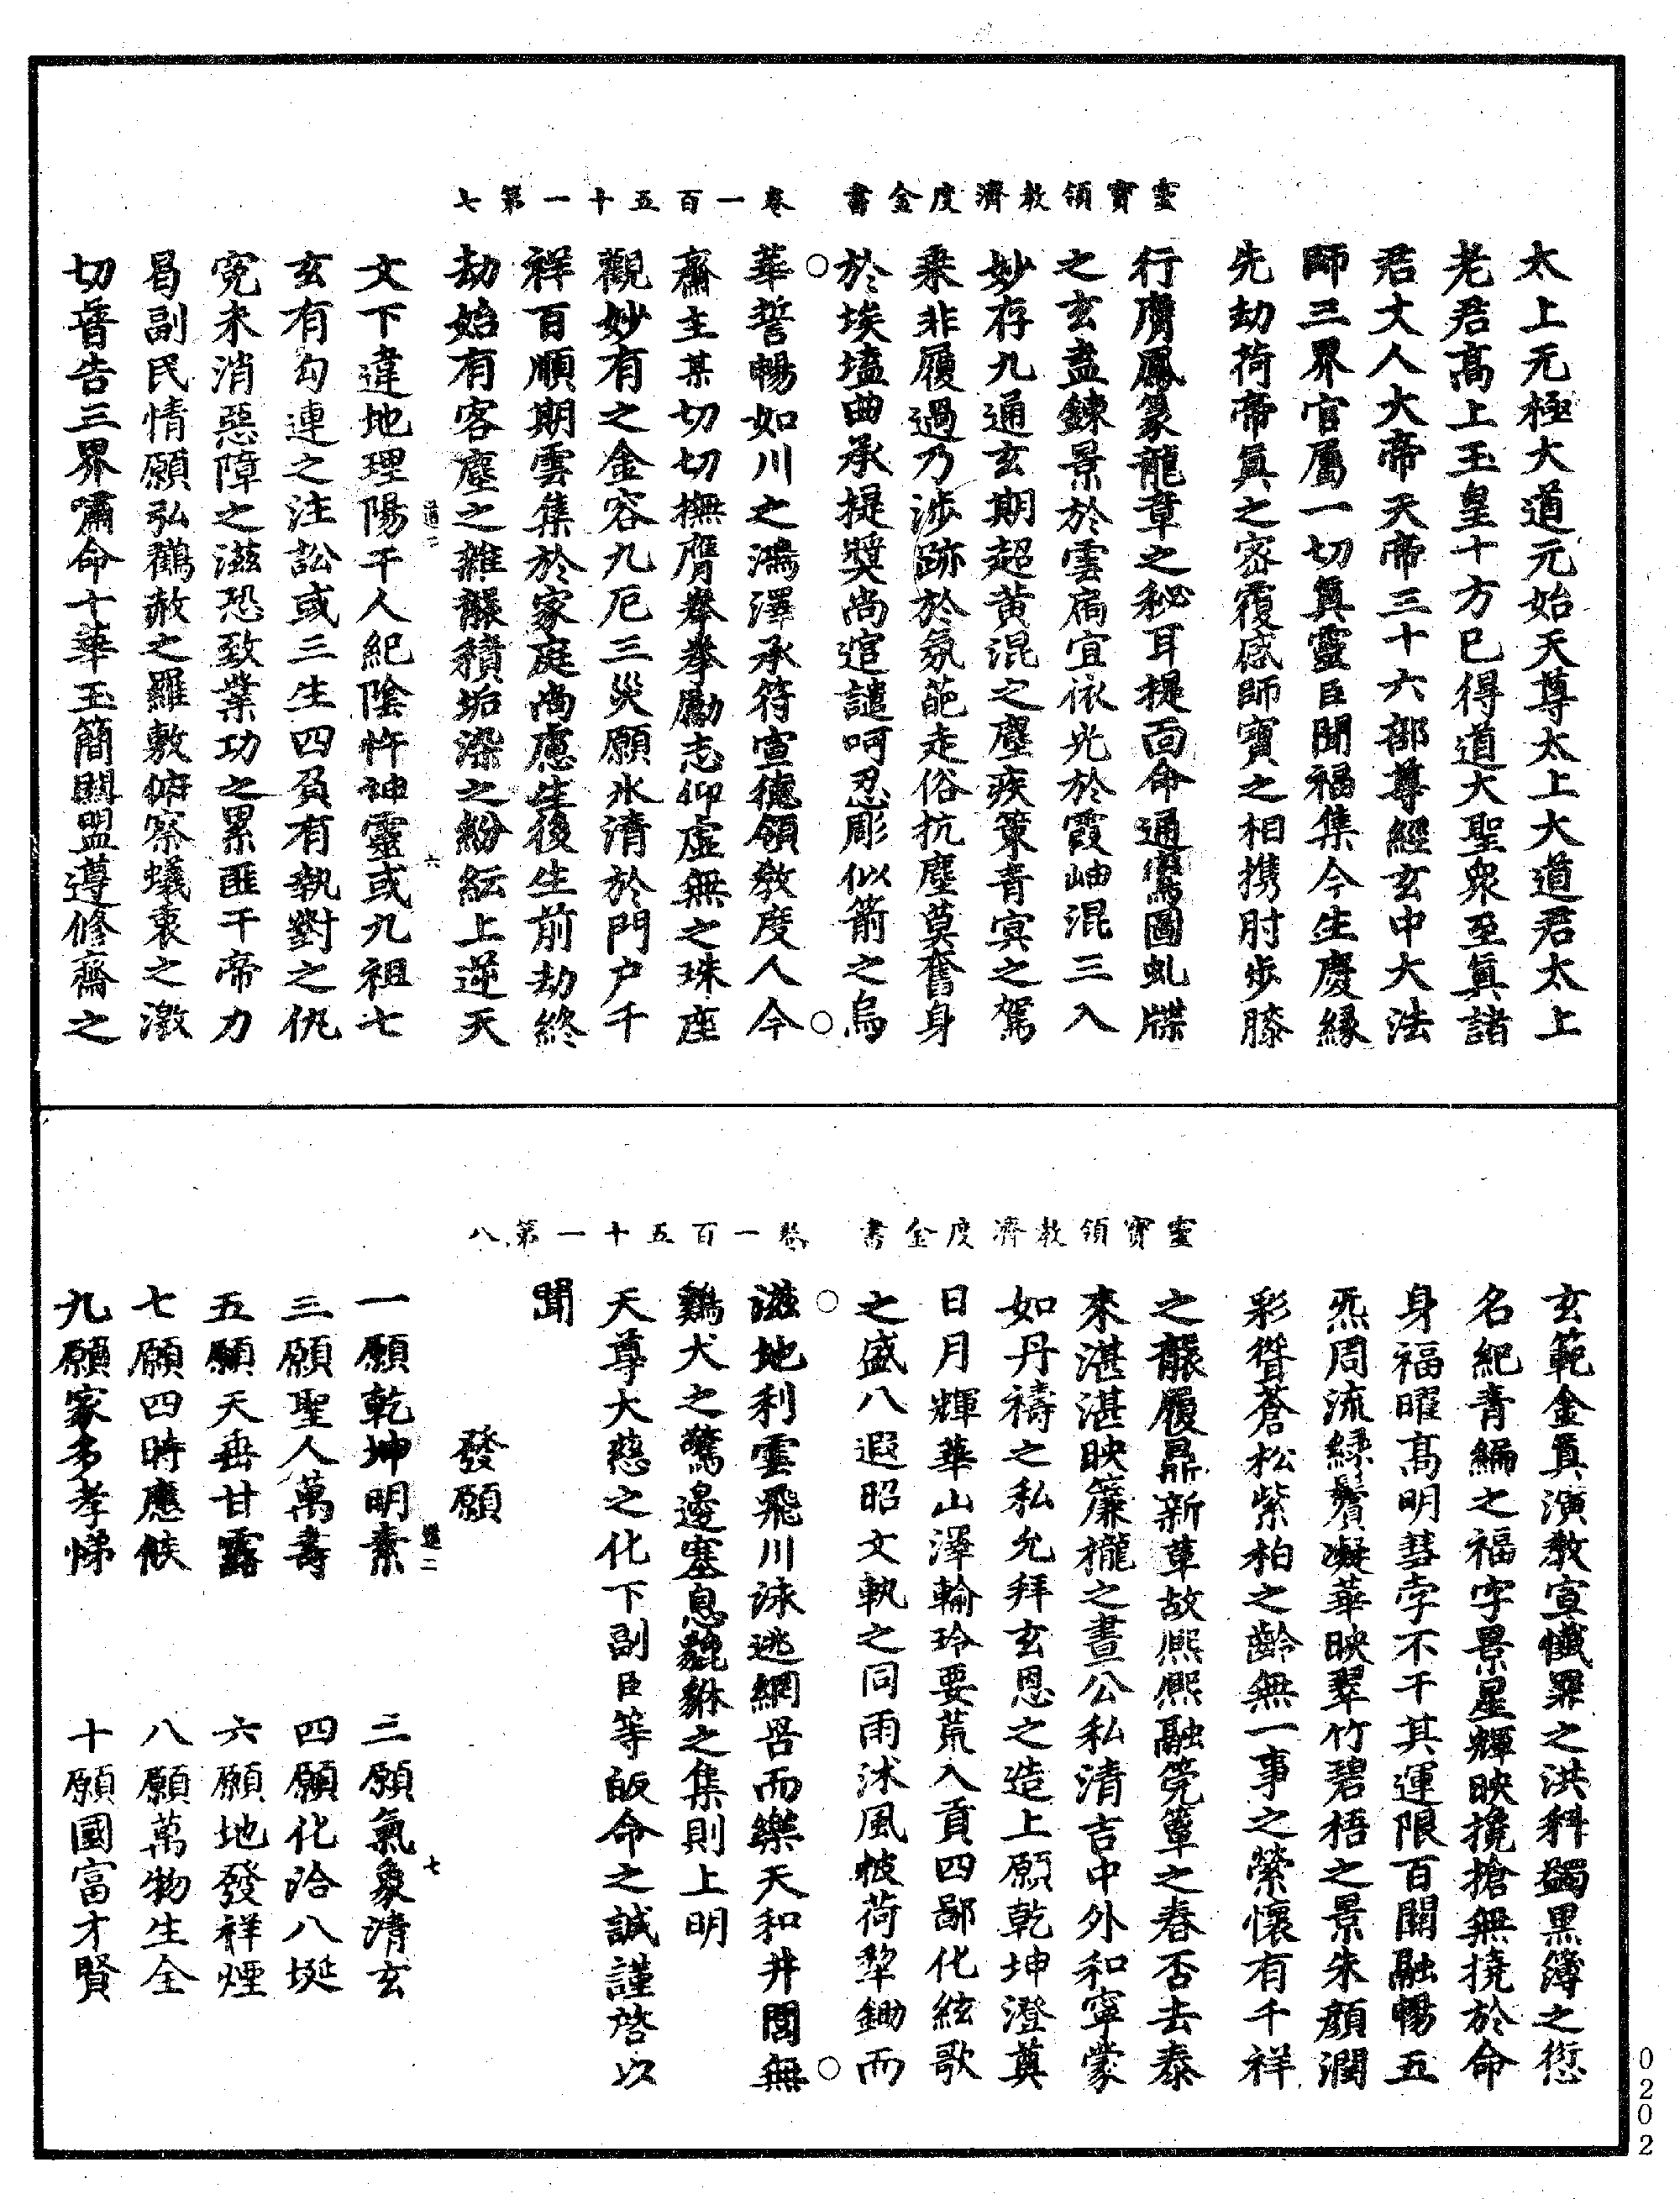 靈寶領教濟度金書　卷一百五十一第七
太上元極大道元始天尊太上大道君太上
老君高上玉皇十方已得道大聖衆至真諸
君丈人大帝天帝三十六部尊經玄中大法
師三界官屬一切真靈臣聞福集今生慶緣
先劫荷帝真之密覆感師寶之相携肘步膝
行膺鳳篆龍章之秘耳提面命通鸞圖虬牒
之玄盍鍊景於雲扄宜依光於霞岫混三入
妙存九通玄期超黄混之塵疾策青冥之駕
乗非履過乃涉跡於氛葩走俗抗塵莫奮身
於埃壒曲承提奬尚逭譴呵忍彫似箭之烏
華誓暢如川之鴻澤承符宣德領教度人今
齋主某切切撫膺拳拳勵志仰虛無之珠座
觀妙有之金容九厄三災願氷清於門户千
祥百順期雲集於家庭尚慮生後生前劫終
劫始有客塵之雜䯻積垢染之紛紜上逆天
文下違地理陽干人紀陰忤神靈或九祖七
玄有勾連之注訟或三生四負有執對之仇
寃未消惡障之滋恐致業功之累匪干帝力
曷副民情願弘鸛赦之羅敷俯察蟻衷之激
切普告三界嘯命十華玉簡關盟遵修齋之
道二　六
靈寶領教濟度金書　卷一百五十一第八
玄範金真演教宣懺罪之洪科蠲黑簿之愆
名紀青編之福字景星輝映攙搶無撓於命
身福曜高明彗孛不干其運限百關融暢五
炁周流綠鬢凝華映翠竹碧梧之景朱顔潤
彩聳蒼松紫柏之齡無一事之縈懷有千祥
之䯻履鼎新革故熙熙融筦簟之春否去泰
來湛湛映簾櫳之晝公私清吉中外和寧蒙
如丹禱之私允拜玄恩之造上願乾坤澄奠
日月輝華山澤輪玲要荒入貢四鄙化絃歌
之盛八遐昭文軌之同雨沐風帔荷犂鋤而
滋地利雲飛川泳逃網罟而樂天和井閭無
鷄犬之驚邊塞息貔貅之集則上明
天尊大慈之化下副臣等皈命之誠謹啓以
聞
發願
一願乾坤明素　二願氣象清玄
三願聖人萬壽　四願化洽八埏
五願天垂甘露　六願地發祥煙
七願四時應候　八願萬物生全
九願家多孝悌　十願國富才賢
道二　七
0202